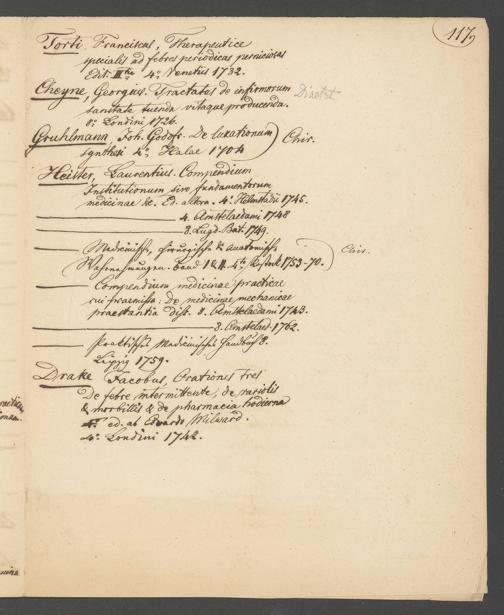 117
Torti, Franciscus, Therapeutice
specialis ad febres periodicas perniciosas
Edit. IIte 4o. Venetiis 1732.
Cheyne, Georgius, Tractatus de infirmorum Diaetet
sanitate tuenda vitaque producenda.
8o Londini 1726.
Gruhlmann, Joh. Godofr. De luxationum Chir.
synthesi 4o. Halae 1704
Heister, Laurentius. Compendium
Institutionum sive fundamentorum
medicinae &c. Ed. altera. 4o. Helmstadii 1745.
4. Amstelaedami 1748
8. Lugd. Bat. 1749.
Medicinische, chirurgische & anatomische Chir.
Wahrnehmungen. Band I & II. 4o. Rostock 1753-70.
Compendium medicinae practicae
cui praemissa. de medicinae mechanicae
praestantia Diss. 8. Amstelaedami 1743.
8. Amstelaed. 1762.
Praktisches Medicinisches Handbuch 8.
Leipzig 1759.
Drake Jacobus, Orationes tres
De febre intermittente, de variolis
& morbillis & de pharmacia hodierna
ed. ab Edvardo Milward.
4o. Londini 1742.